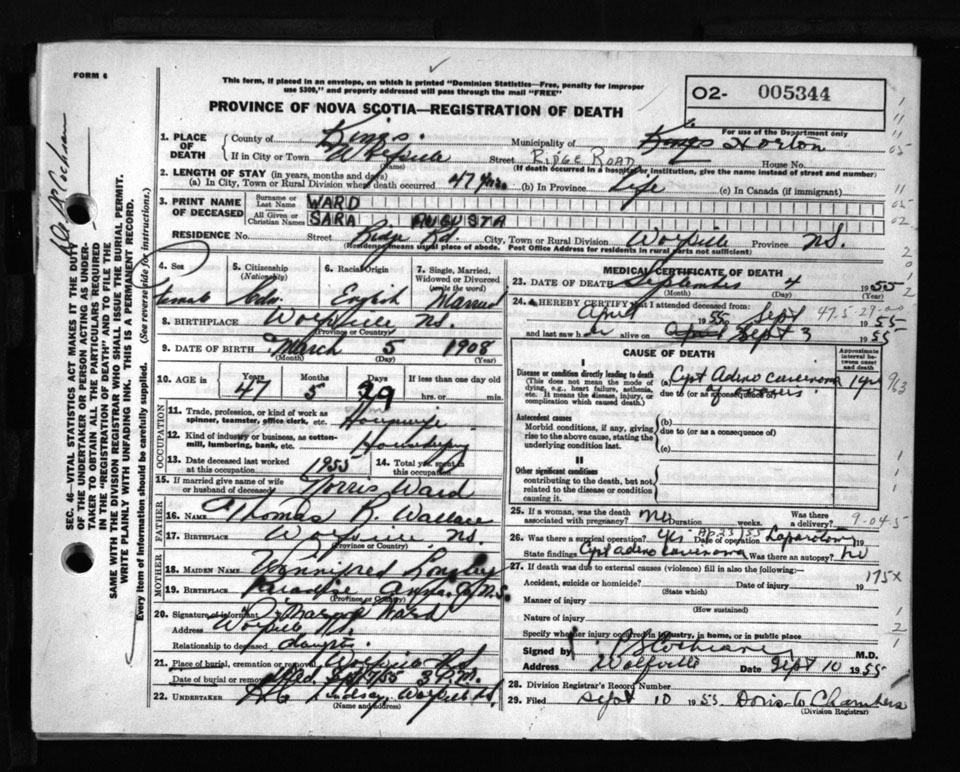 FORM 6
This form, if placed in an envelope, on which is printed "Dominion Statistics—Free, penalty for improper
use $300," and properly addressed will pass through the mail "FREE"
PROVINCE OF NOVA SCOTIA—REGISTRATION OF DEATH
O2- 005344
For use of the Department only
SEC. 46—VITAL STATISTICS ACT MAKES IT THE DUTY
OF THE UNDERTAKER OR PERSON ACTING AS UNDER-
TAKER TO OBTAIN ALL THE PARTICULARS REQUIRED
IN THE "REGISTRATION OF DEATH" AND TO FILE THE
SAME WITH THE DIVISION REGISTRAR WHO SHALL ISSUE THE BURIAL PERMIT.
WRITE PLAINLY WITH UNFADING INK. THIS IS A PERMANENT RECORD.
Every item of information should be carefully supplied. (See reverse side for instructions.)
1. PLACE OF DEATH County of Kings. Municipality of Kings Horton
If in City or Town Wolfville (Name) Street RIDGE ROAD House No.
(If death occurred in a hospital or institution, give the name instead of street and number)
2. LENGTH OF STAY (in years, months and days)
(a) In City, Town or Rural Division where death occurred 47 yrs. (b) In Province Life (c) In Canada (if immigrant)
3. PRINT NAME OF DECEASED Surname or Last Name WARD
All Given or Christian Names SARA AUGUSTA
RESIDENCE No. Street Ridge Rd. City, Town or Rural Division Wolfville Province N.S.
(Residence means usual place of abode. Post Office Address for residents in rural parts not sufficient)
4. Sex 5. Citizenship (Nationality) 6. Racial Origin 7. Single, Married, Widowed or Divorced (write the word)
Female Cdn. English Married
8. BIRTHPLACE Wolfville N.S.
(Province or Country)
9. DATE OF BIRTH March 5 1908
(Month) (Day) (Year)
10. AGE in Years Months Days If less than one day old
47 5 29 hrs. or min.
OCCUPATION
11. Trade, profession, or kind of work as spinner, teamster, office clerk, etc. Housewife
12. Kind of industry or business, as cotton-mill, lumbering, bank, etc.
13. Date deceased last worked at this occupation 1955 14. Total yrs. spent in this occupation
15. If married give name of wife or husband of deceased Norris Ward
FATHER
16. NAME Thomas R. Wallace
17. BIRTHPLACE Wolfville N.S.
(Province or Country)
MOTHER
18. MAIDEN NAME Winnifred Longley
19. BIRTHPLACE Paradise Annap. Co N.S.
(Province or Country)
20. Signature of informant Ward
Address Wolfville
Relationship to deceased daughter.
21. Place of burial, cremation or removal Wolfville N.S.
Date of burial or removal Wed. Sept 7/55 3 P.M.
22. UNDERTAKER Lindsay, Wolfville N.S.
(Name and address)
MEDICAL CERTIFICATE OF DEATH
23. DATE OF DEATH September 4 1955
(Month) (Day) (Year)
24. I HEREBY CERTIFY that I attended deceased from
April 1955 Sept 1955
and last saw her alive on Sept 3 1955
I CAUSE OF DEATH Approximate interval between cause and death
Disease or condition directly leading to death
(This does not mean the mode of dying, e.g., heart failure, asthenia, etc. It means the disease, injury, or complication which caused death.)
(a) Cyst Adeno carcinoma 1 yr
due to (or as a consequence of)
Antecedent causes
Morbid conditions, if any, giving rise to the above cause, stating the underlying condition last.
(b)
due to (or as a consequence of)
(c)
II
Other significant conditions
contributing to the death, but not related to the disease or condition causing it.
25. If a woman, was the death associated with pregnancy? no Duration weeks. Was there a delivery?
26. Was there surgical operation? yes Date of operation Ap. 23/55 Laparotomy 19
State findings Cyst adeno carcinoma Was there an autopsy? no
27. If death was due to external causes (violence) fill in also the following:—
Accident, suicide or homicide? Date of injury 19
(State which)
Manner of injury
(How sustained)
Nature of injury
Specify whether injury occurred in industry, in home, or in public place
Signed by M.D.
Address Wolfville Date Sept 10 1955
28. Division Registrar's Record Number
29. Filed Sept 10 1955 Doris W Chambers
(Division Registrar)